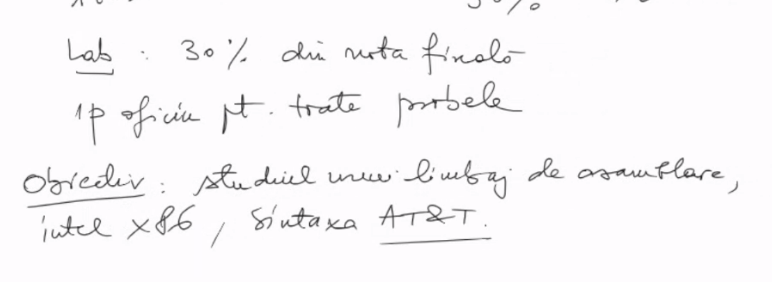 30%
Lab : 30% din nota finală
1p oficiu pt. toate probele
Obiectiv : studiul unui limbaj de asamblare,
intel x86, sintaxa AT&T.